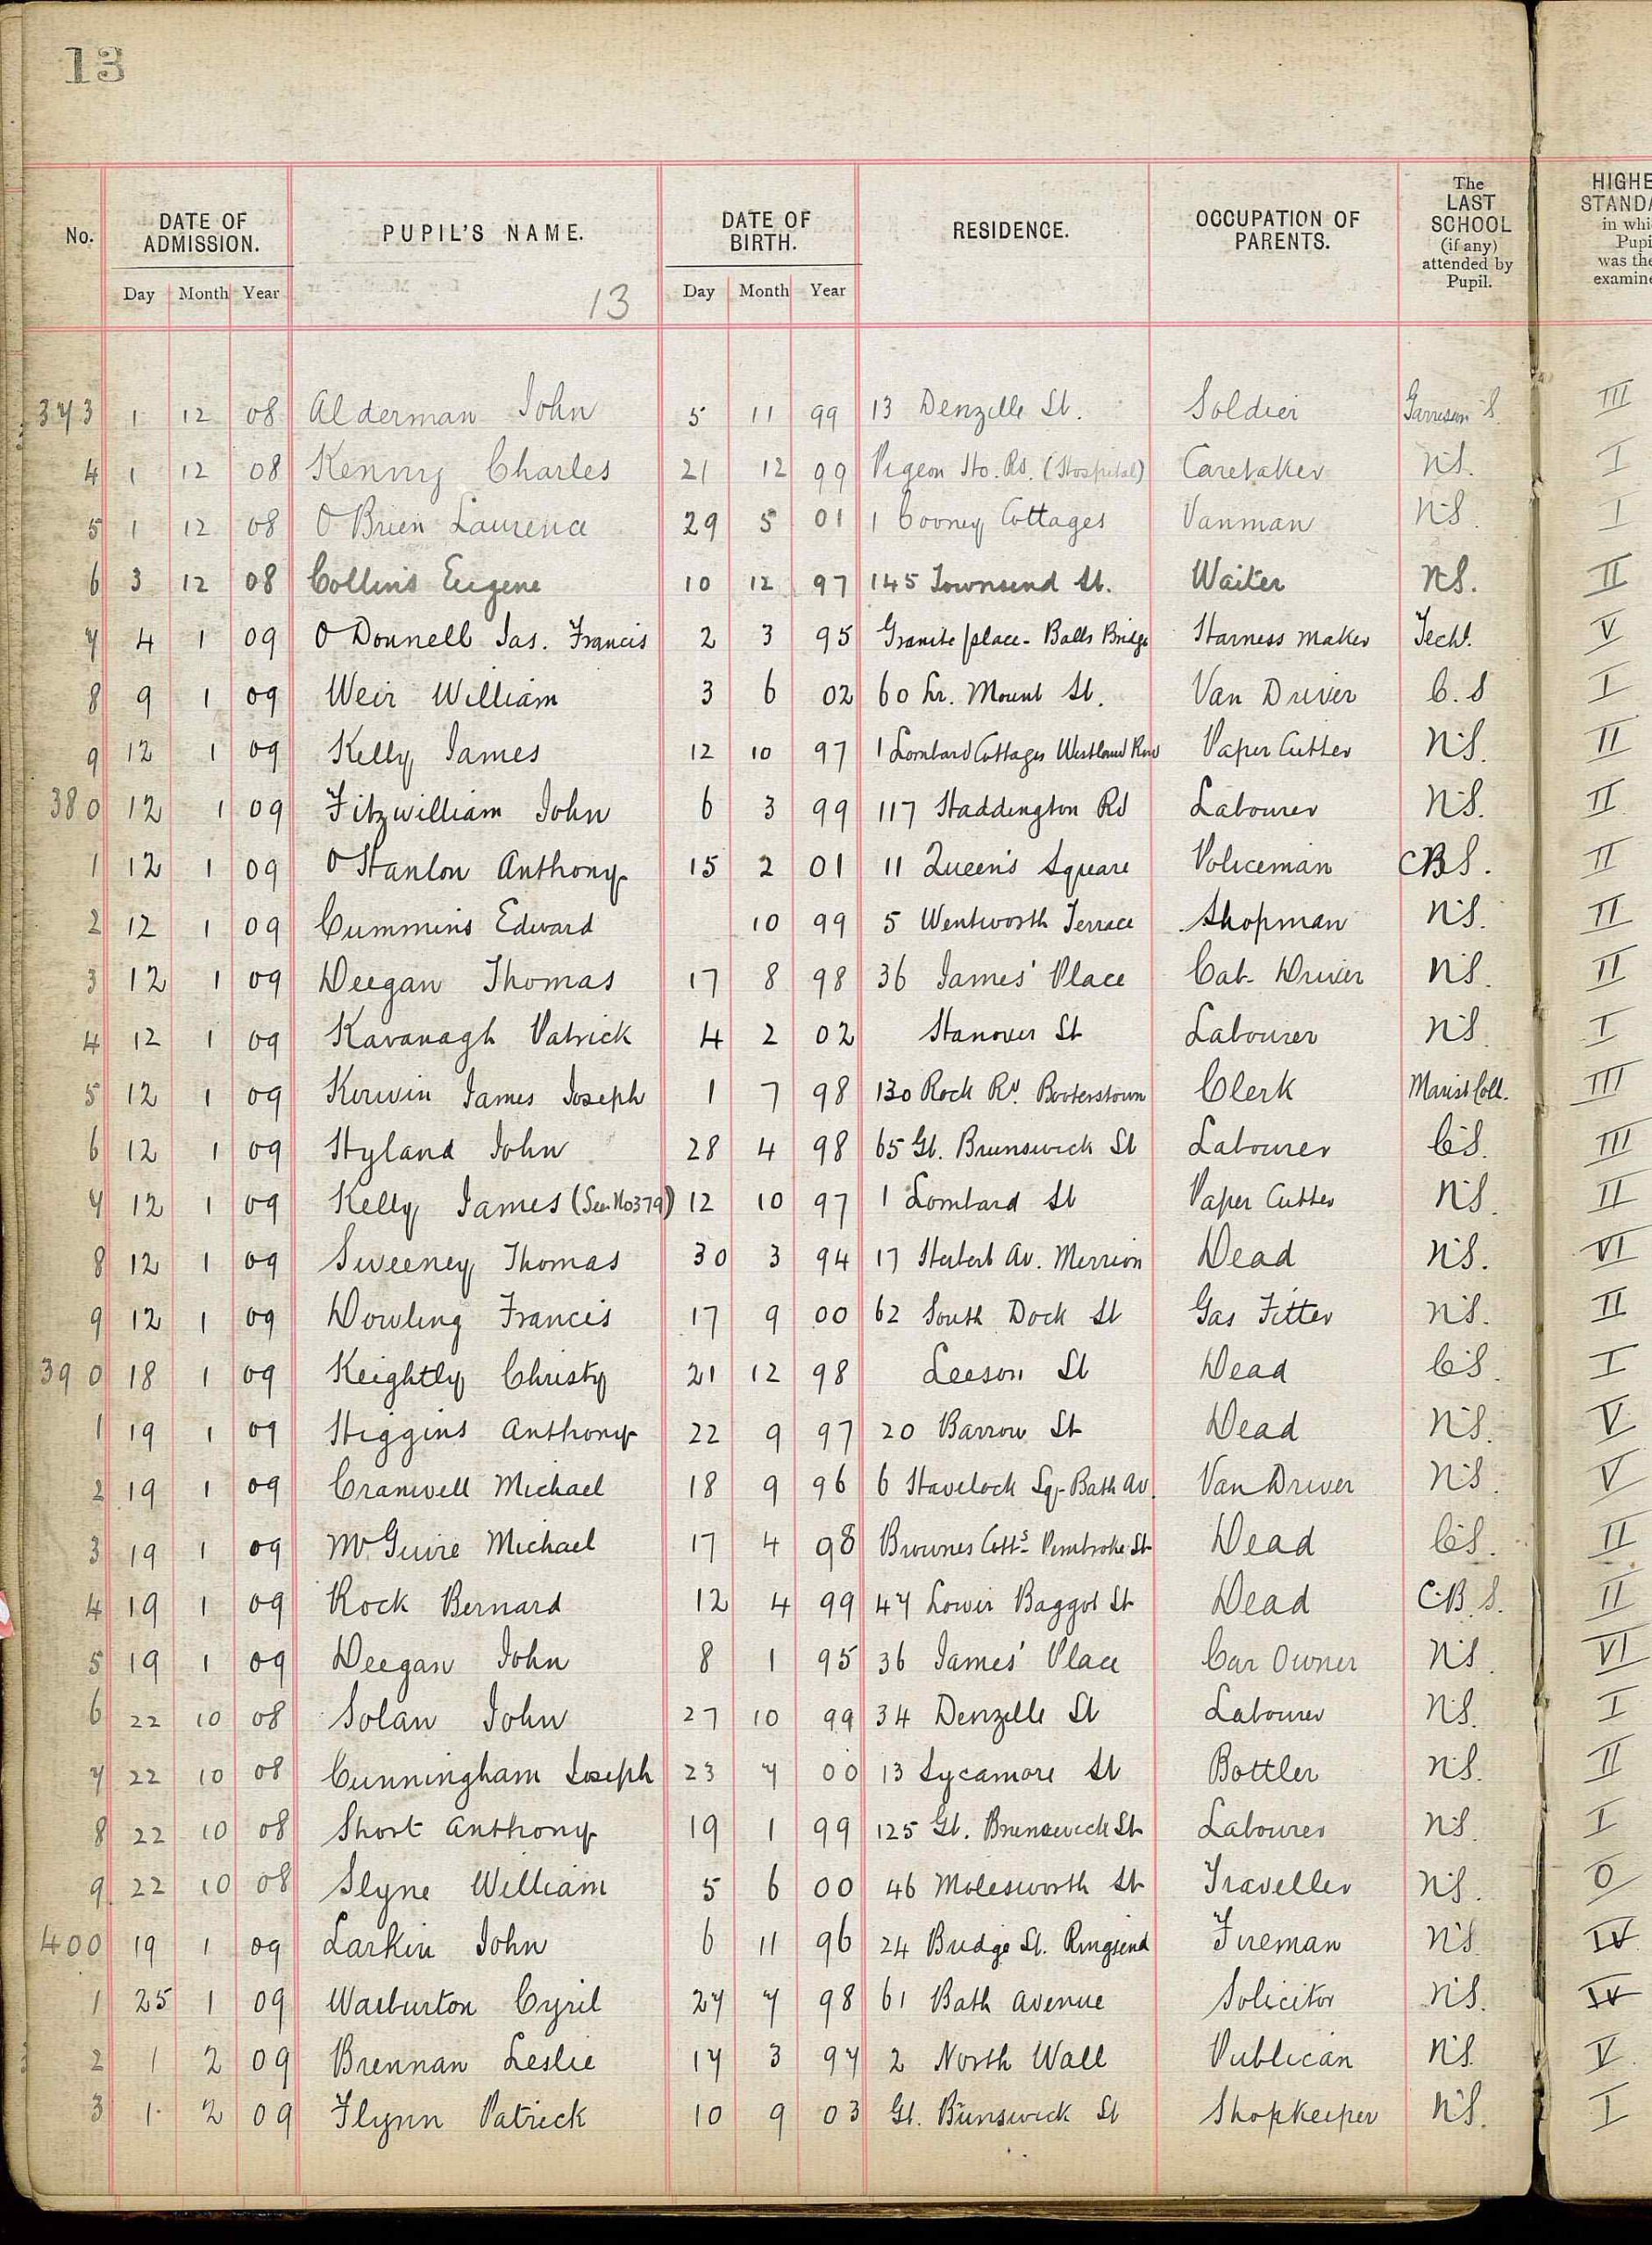 13
No. DATE OF ADMISSION. PUPIL'S NAME. DATE OF BIRTH. RESIDENCE. OCCUPATION OF PARENTS. The LAST SCHOOL (if any) attended by Pupil. HIGHE STANDA in whi Pupi was the examine
Day Month Year 13 Day Month Year
373 1 12 08 Alderman John 5 11 99 13 Denzille St. Soldier Garrison S. III
4 1 12 08 Kenny Charles 21 12 99 Pigeon Ho. Rd. (Hospital) Caretaker N.S. I
5 1 12 08 O'Brien Laurence 29 5 01 1 Cooney Cottages Vanman N.S. I
6 3 12 08 Collins Eugene 10 12 97 145 Townsend St. Waiter N.S. II
7 4 1 09 O'Donnell Jas. Francis 2 3 95 Granite place - Balls Bridge Harness Maker Techl. V
8 9 1 09 Weir William 3 6 02 60 Lr. Mount St. Van Driver C.S I
9 12 1 09 Kelly James 12 10 97 1 Lombard Cottages Westland Row Paper Cutter N.S. II
380 12 1 09 Fitzwilliam John 6 3 99 117 Haddington Rd Labourer N.S. II
1 12 1 09 O'Hanlon Anthony 15 2 01 11 Queen's Square Policeman CBS. II
2 12 1 09 Cummins Edward 10 99 5 Wentworth Terrace Shopman N.S. II
3 12 1 09 Deegan Thomas 17 8 98 36 James' Place Cab-Driver N.S. II
4 12 1 09 Kavanagh Patrick 4 2 02 Hanover St Labourer N.S. I
5 12 1 09 Kirwin James Joseph 1 7 98 130 Rock Rd. Booterstown Clerk Marist Coll. III
6 12 1 09 Hyland John 28 4 98 65 Gt. Brunswick St Labourer C.S. III
7 12 1 09 Kelly James (See No 379) 12 10 97 1 Lombard St Paper Cutter N.S. II
8 12 1 09 Sweeney Thomas 30 3 94 17 Herbert Av. Merrion Dead N.S. VI
9 12 1 09 Dowling Francis 17 9 00 62 South Dock St Gas Fitter N.S. II
390 18 1 09 Keightly Christy 21 12 98 Leeson St Dead C.S. I
1 19 1 09 Higgins Anthony 22 9 97 20 Barrow St Dead N.S. V
2 19 1 09 Cranwell Michael 18 9 96 6 Havelock Sq- Bath Av. Van Driver N.S. V
3 19 1 09 McGuire Michael 17 4 98 Brownes Cotts Pembroke St Dead C.S. II
4 19 1 09 Rock Bernard 12 4 99 47 Lower Baggot St Dead C.B.S. II
5 19 1 09 Deegan John 8 1 95 36 James' Place Car Owner N.S. VI
6 22 10 08 Solan John 27 10 99 34 Denzille St Labourer N.S. I
7 22 10 08 Cunningham Joseph 23 7 00 13 Sycamore St Bottler N.S. II
8 22 10 08 Short Anthony 19 1 99 125 Gt. Brunswick St Labourer N.S. I
9 22 10 08 Slyne William 5 6 00 46 Molesworth St Traveller N.S. O
400 19 1 09 Larkin John 6 11 96 24 Bridge St. Ringsend Fireman N.S. IV
1 25 1 09 Warburton Cyril 27 7 98 61 Bath Avenue Solicitor N.S. IV
2 1 2 09 Brennan Leslie 17 3 97 2 North Wall Publican N.S. V
3 1 2 09 Flynn Patrick 10 9 03 Gt. Bunswick St Shopkeeper N.S. I